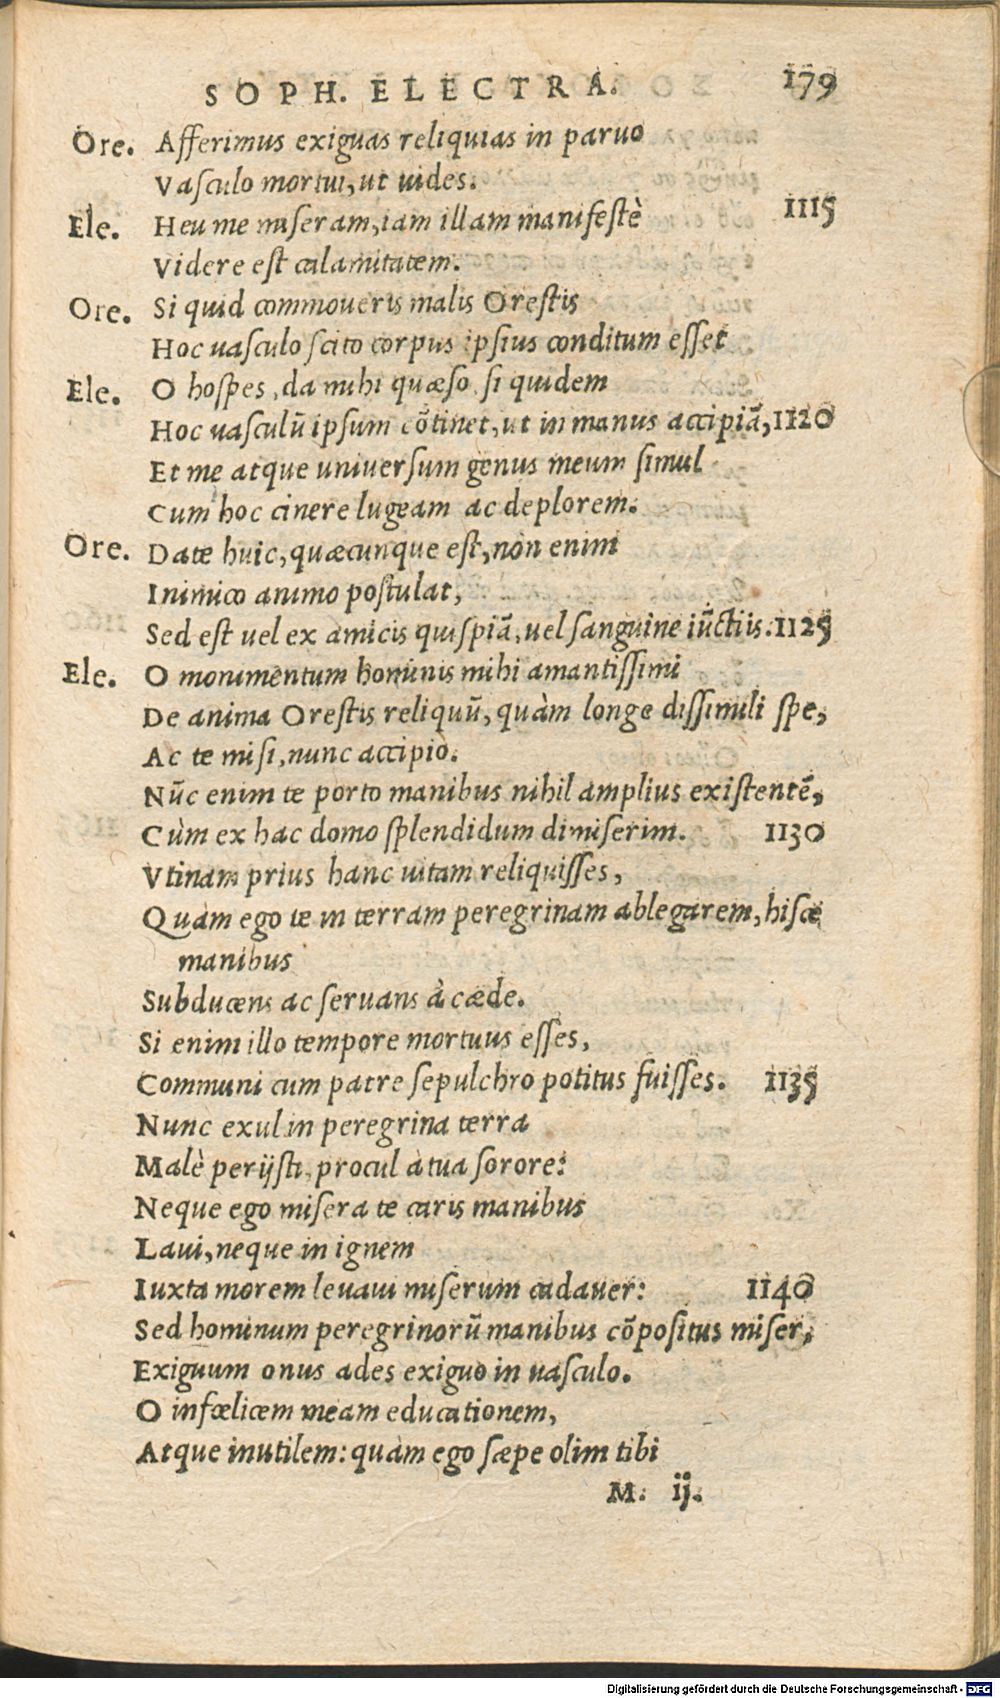 SOPH. ELECTRA. 179
Ore. Afferimus exiguas reliquias in paruo
Vasculo mortui, ut uides.
Ele. Heu me miseram, iam illam manifestè 1115
Videre est calamitatem.
Ore. Si quid commoueris malis Orestis
Hoc uasculo scito corpus ipsius conditum esset
Ele. O hospes, da mihi quæso, si quidem
Hoc uasculū ipsum cōtinet, ut in manus accipiā, 1120
Et me atque uniuersum genus meum simul
Cum hoc cinere lugeam ac deplorem.
Ore. Date huic, quæcunque est, non enim
Inimico animo postulat,
Sed est uel ex amicis quispiā, uel sanguine iūctis. 1125
Ele. O monumentum hominis mihi amantissimi
De anima Orestis reliquū, quàm longe dissimili spe,
Ac te misi, nunc accipio.
Nūc enim te porto manibus nihil amplius existentē,
Cùm ex hac domo splendidum dimiserim. 1130
Vtinam prius hanc uitam reliquisses,
Quàm ego te in terram peregrinam ablegarem, hisce
manibus
Subducens ac seruans à cæde.
Si enim illo tempore mortuus esses,
Communi cum patre sepulchro potitus fuisses. 1135
Nunc exul in peregrina terra
Malè perijsti, procul a tua sorore:
Neque ego misera te caris manibus
Laui, neque in ignem
Iuxta morem leuaui miserum cadauer: 1140
Sed hominum peregrinorū manibus cōpositus miser,
Exiguum onus ades exiguo in uasculo.
O infœlicem meam educationem,
Atque inutilem: quàm ego sæpe olim tibi
M. ij.
Digitalisierung gefördert durch die Deutsche Forschungsgemeinschaft - DFG